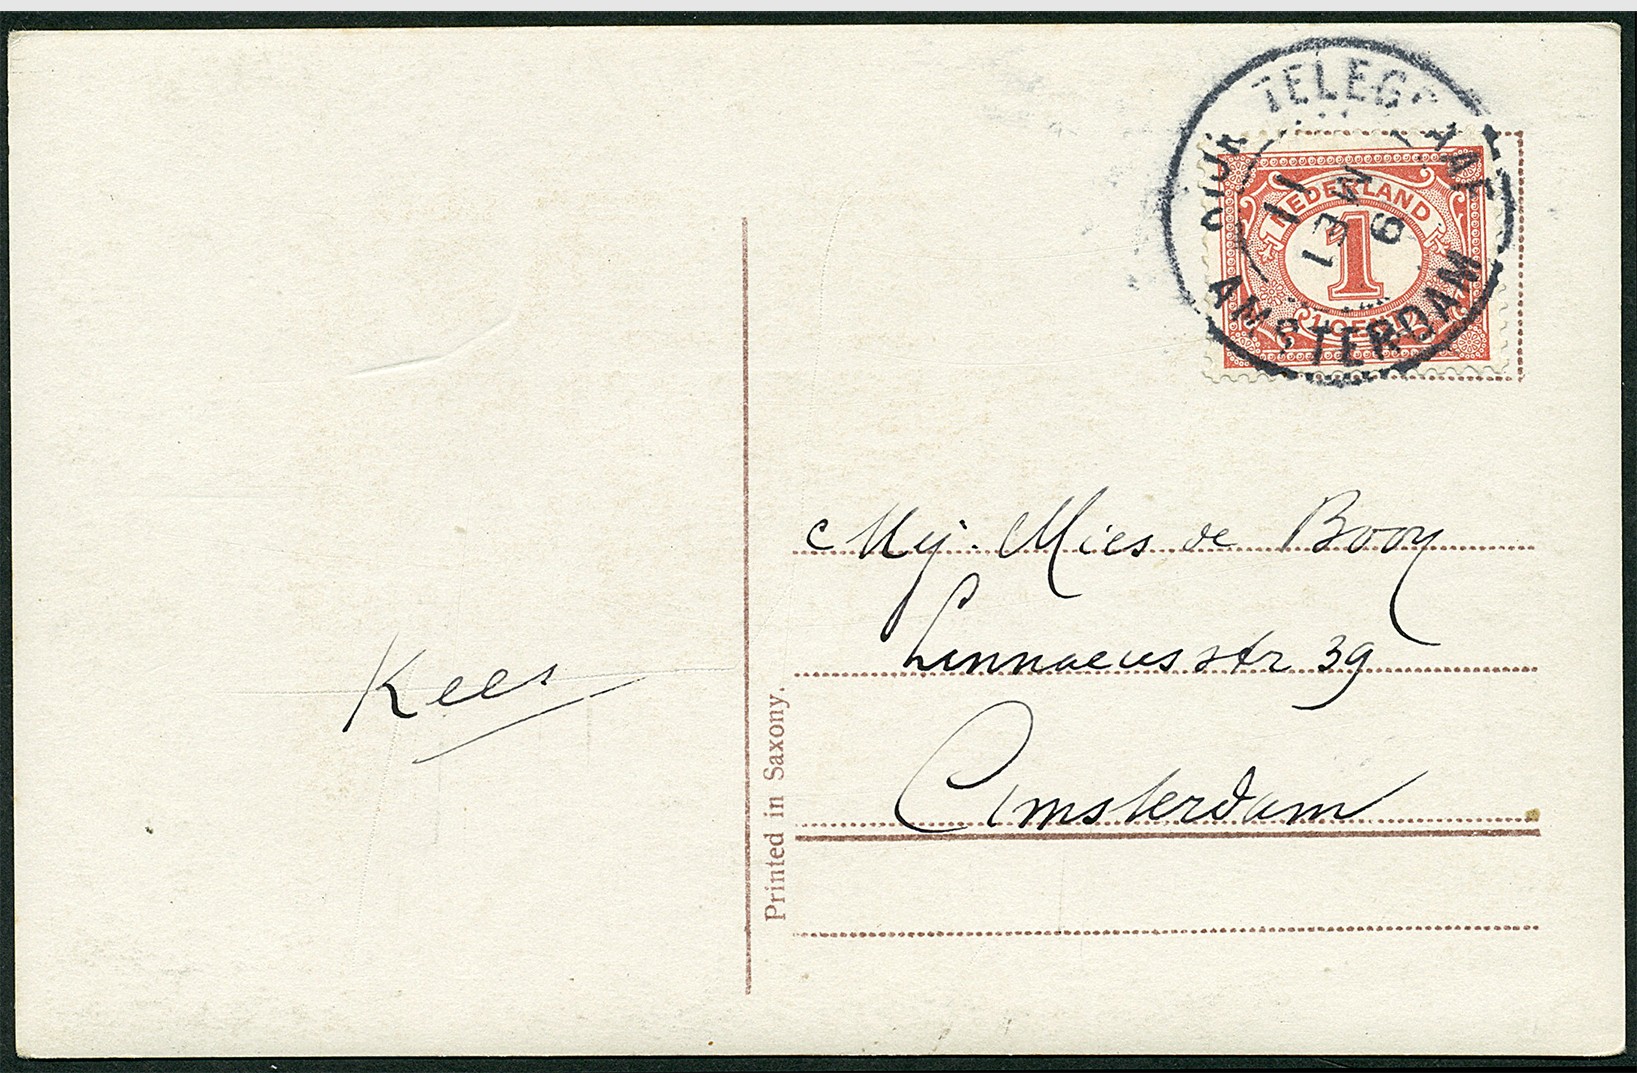 RIJK TELEGRAAF
AMSTERDAM
NEDERLAND
1
1 CENT
Mej. Mies de Booy
Linnaeusstr 39
Amsterdam
Kees
Printed in Saxony.